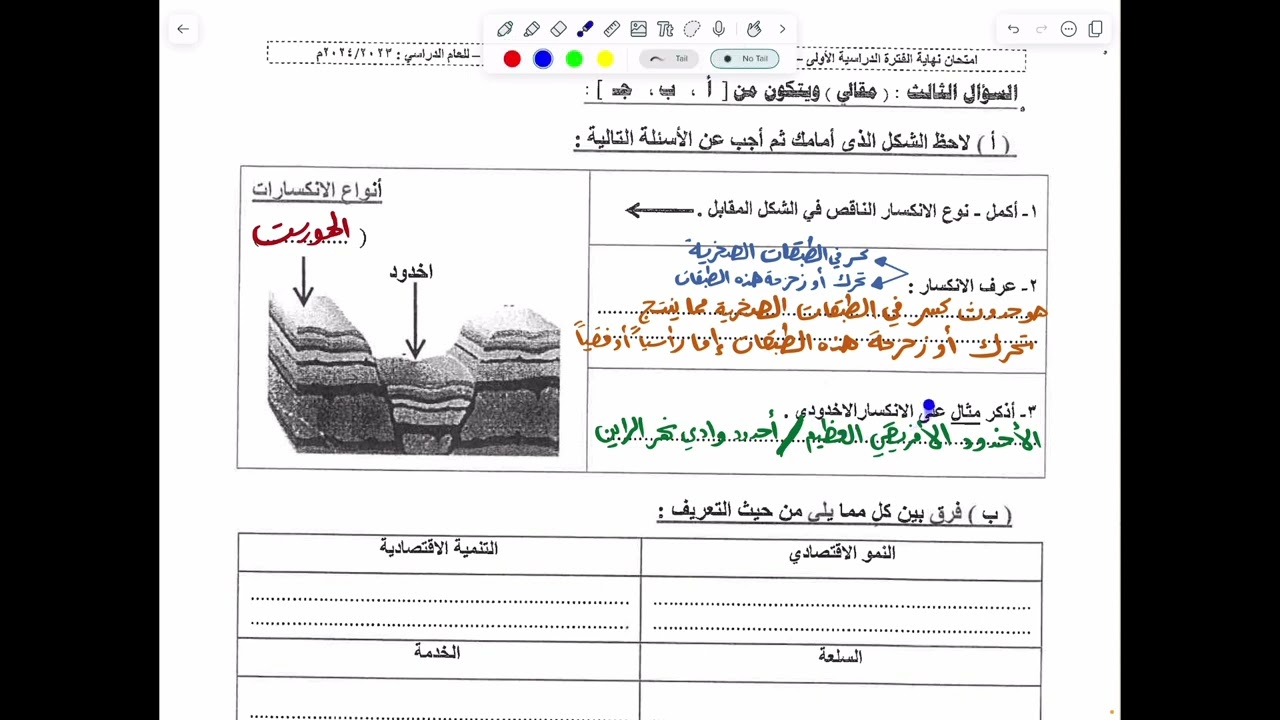 Tail
No Tail
امتحان نهاية الفترة الدراسية الأولى –
– للعام الدراسي : ٢٠٢٤/٢٠٢٣م
السؤال الثالث : ( مقالي ) ويتكون من [ أ ، ب ، جـ ] :
( أ ) لاحظ الشكل الذى أمامك ثم أجب عن الأسئلة التالية :
١- أكمل - نوع الانكسار الناقص في الشكل المقابل .
أنواع الانكسارات
( الهورست
اخدود
كسر في الطبقات الصخرية
تحرك أو زحزحة هذه الطبقات
٢- عرف الانكسار :
هو حدوث كسر في الطبقات الصخرية مما ينتج
تحرك أو زحزحة هذه الطبقات إما رأسياً أو أفقياً
٣- أذكر مثال على الانكسار الاخدودي .
الأخدود الأفريقي العظيم / أخدود وادي نهر الراين
( ب ) فرق بين كل مما يلى من حيث التعريف :
النمو الاقتصادي
التنمية الاقتصادية
السلعة
الخدمة